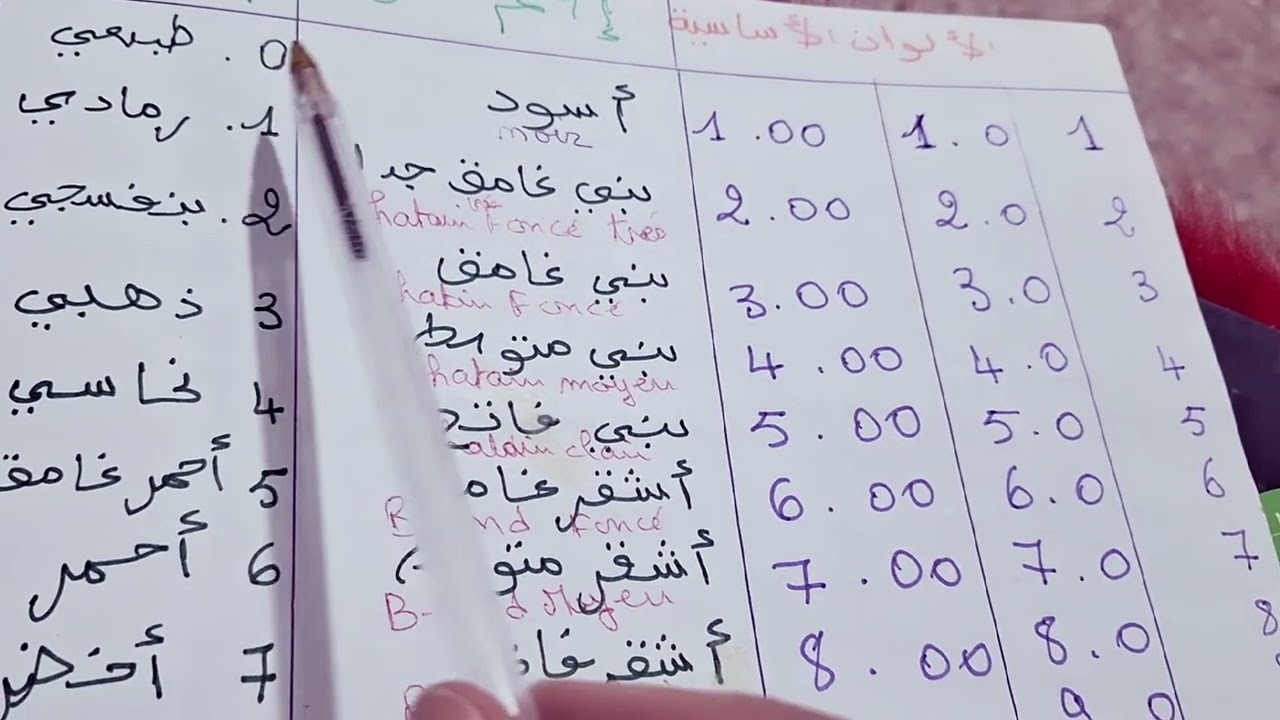 الألوان الأساسية
1 1.0 1.00 أسود
noir
0. طبيعي
2 2.0 2.00 بني غامق جدا
hatain foncé très
1. رمادي
3 3.0 3.00 بني غامق
hatain foncé
2. بنفسجي
4 4.0 4.00 بني متوسط
hatain moyen
3 ذهبي
5 5.0 5.00 بني فاتح
clair
4 نحاسي
6 6.0 6.00 أشقر غام
B nd foncé
5 أحمر غامق
7 7.0 7.00 أشقر متو
B d Moyen
6 أحمر
8 8.0 8.00 أشقر فات
7 أخضر
9 0